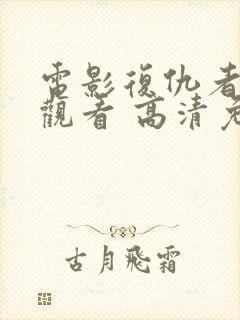 電影復仇者
觀看 高清
古月飛霜